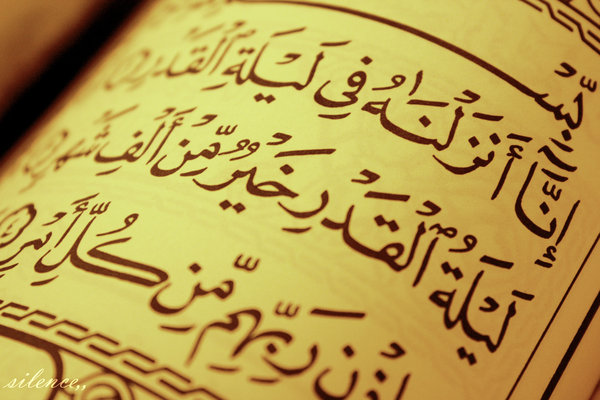 بِسْ
إِنَّآ أَنزَلْنَٰهُ فِي لَيْلَةِ ٱلْقَدْرِ
لَيْلَةُ ٱلْقَدْرِ خَيْرٌ مِّنْ أَلْفِ شَهْرٍ
رَبِّهِم مِّن كُلِّ أَمْرٍ
silence,,